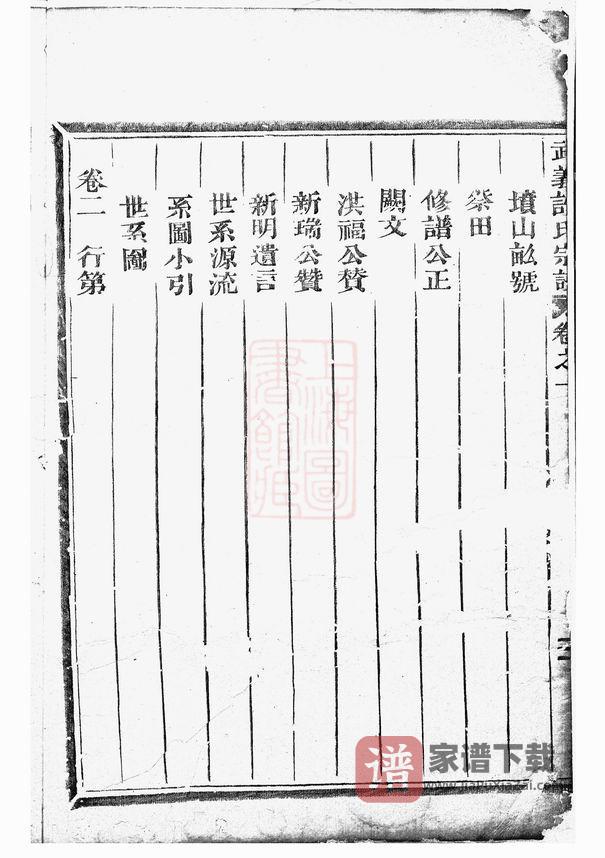 武義許氏宗譜 卷之一
墳山畝號
祭田
修譜公正
闕文
洪福公贊
新瑞公贊
新明遺言
世系源流
系圖小引
世系圖
卷二 行第
上海圖書館藏
谱 家谱下载
www.jiapuxiazai.com